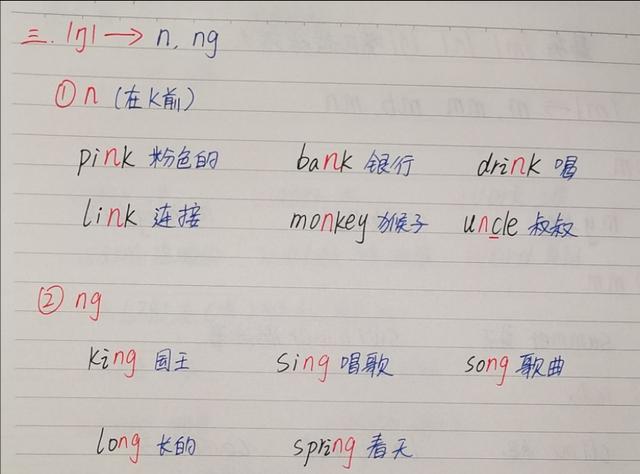 三. |ŋ| → n, ng
① n (在k前)
pink 粉色的 bank 银行 drink 喝
link 连接 monkey 猴子 uncle 叔叔
② ng
king 国王 sing 唱歌 song 歌曲
long 长的 spring 春天